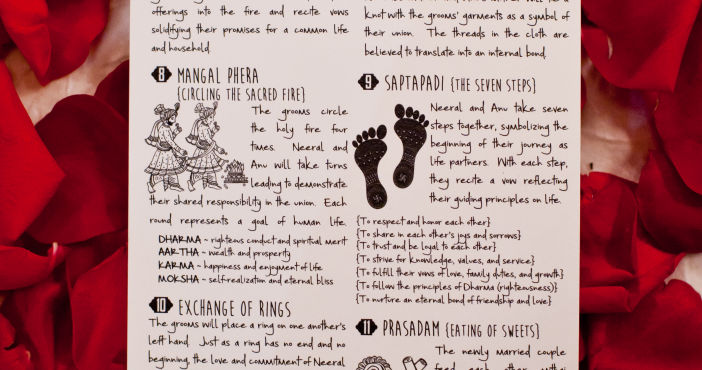 offerings into the fire and recite vows
solidifying their promises for a common life
and household.
8 MANGAL PHERA
{CIRCLING THE SACRED FIRE}
The grooms circle
the holy fire four
times. Neeral and
Anu will take turns
leading to demonstrate
their shared responsibility in the union. Each
round represents a goal of human life.
DHARMA ~ righteous conduct and spiritual merit
AARTHA ~ wealth and prosperity
KARMA ~ happiness and enjoyment of life
MOKSHA ~ self-realization and eternal bliss
10 EXCHANGE OF RINGS
The grooms will place a ring on one another's
left hand. Just as a ring has no end and no
beginning, the love and commitment of Neeral
knot with the grooms' garments as a symbol of
their union. The threads in the cloth are
believed to translate into an internal bond.
9 SAPTAPADI {THE SEVEN STEPS}
Neeral and Anu take seven
steps together, symbolizing the
beginning of their journey as
life partners. With each step,
they recite a vow reflecting
their guiding principles on life.
{To respect and honor each other}
{To share in each other's joys and sorrows}
{To trust and be loyal to each other}
{To strive for knowledge, values, and service}
{To fulfill their vows of love, family duties, and growth}
{To follow the principles of Dharma (righteousness)}
{To nurture an eternal bond of friendship and love}
11 PRASADAM {EATING OF SWEETS}
The newly married couple
feed each other